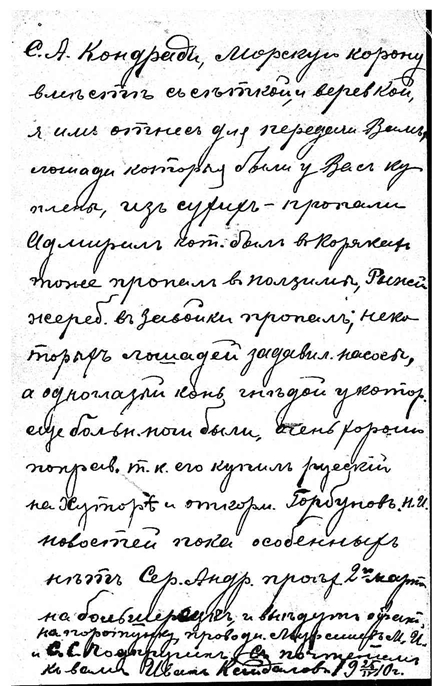 С. А. Кондради, Морскую корону
вместѣ съ сѣткой и веревкой,
я имъ отнесъ для передачи Вамъ,
лошади которыя были у Васъ ку
плены, изъ сихъ - пропали
Адмиралъ кот. былъ в Корякахъ
тоже пропалъ в ползимы, Рыжій
жереб. въ Завойки пропалъ; неко
торыхъ лошадей задавил. насосы,
а одноглазый конь гнѣдой у котор.
еще больн. ноги были, очень хорошо
поправ. т. к. его купилъ русскій
на Хуторѣ и откорм. Горбуновъ Н. И.
новостей пока особенныхъ
нѣтъ Сер. Андр. проѣх 2го марта
на большерецкъ и выѣдутъ
на проводи. М. И.
и С. С. Съ почтеніем
къ вамъ Иванъ 19 10 г.